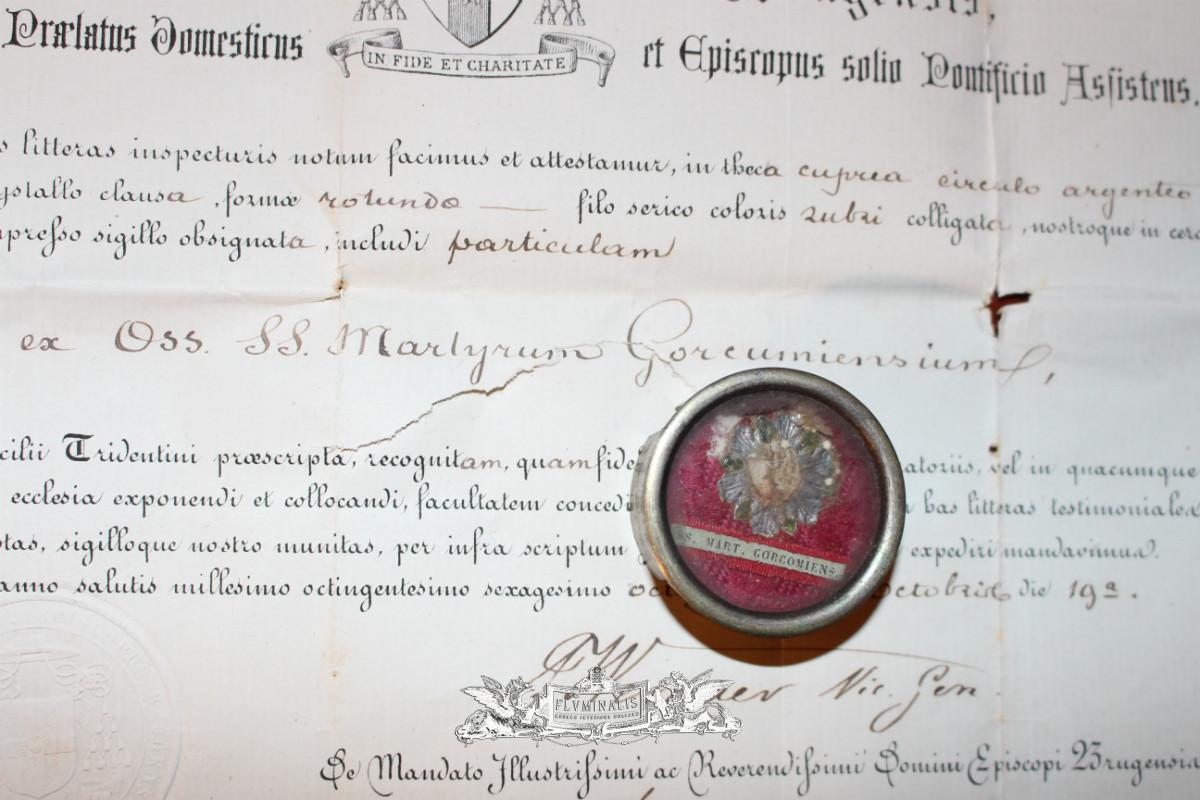 Prælatus Domesticus
IN FIDE ET CHARITATE
et Episcopus solio Pontificio Assistens.
litteras inspecturis notum facimus et attestamur, in theca cuprea circulo argenteo
clausa, formæ rotundæ — filo serico coloris rubri colligata, nostroque in
sigillo obsignata, includi particulam
ex Oss. SS. Martyrum Gorcumiensium,
Tridentini præscripta, recognitam, quam
ecclesia exponendi et collocandi, facultatem
vel in quacumque
has litteras testimoniales
sigilloque nostro munitas, per infra scriptum
expediri mandavimus.
anno salutis millesimo octingentesimo sexagesimo
Octobris die 19ª.
SS. MART. GORCOMIENS.
Vic. Gen.
FLVMINALIS
De Mandato Illustrissimi ac Reverendissimi Domini Episcopi Brugensis